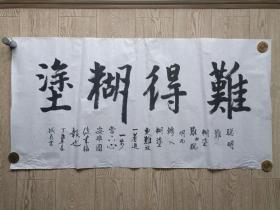 難得糊塗
聰明
難
糊塗
難由聰
明而
轉入
糊塗
更難放
一著退
一步
當下心
安非圖
後來福
報也